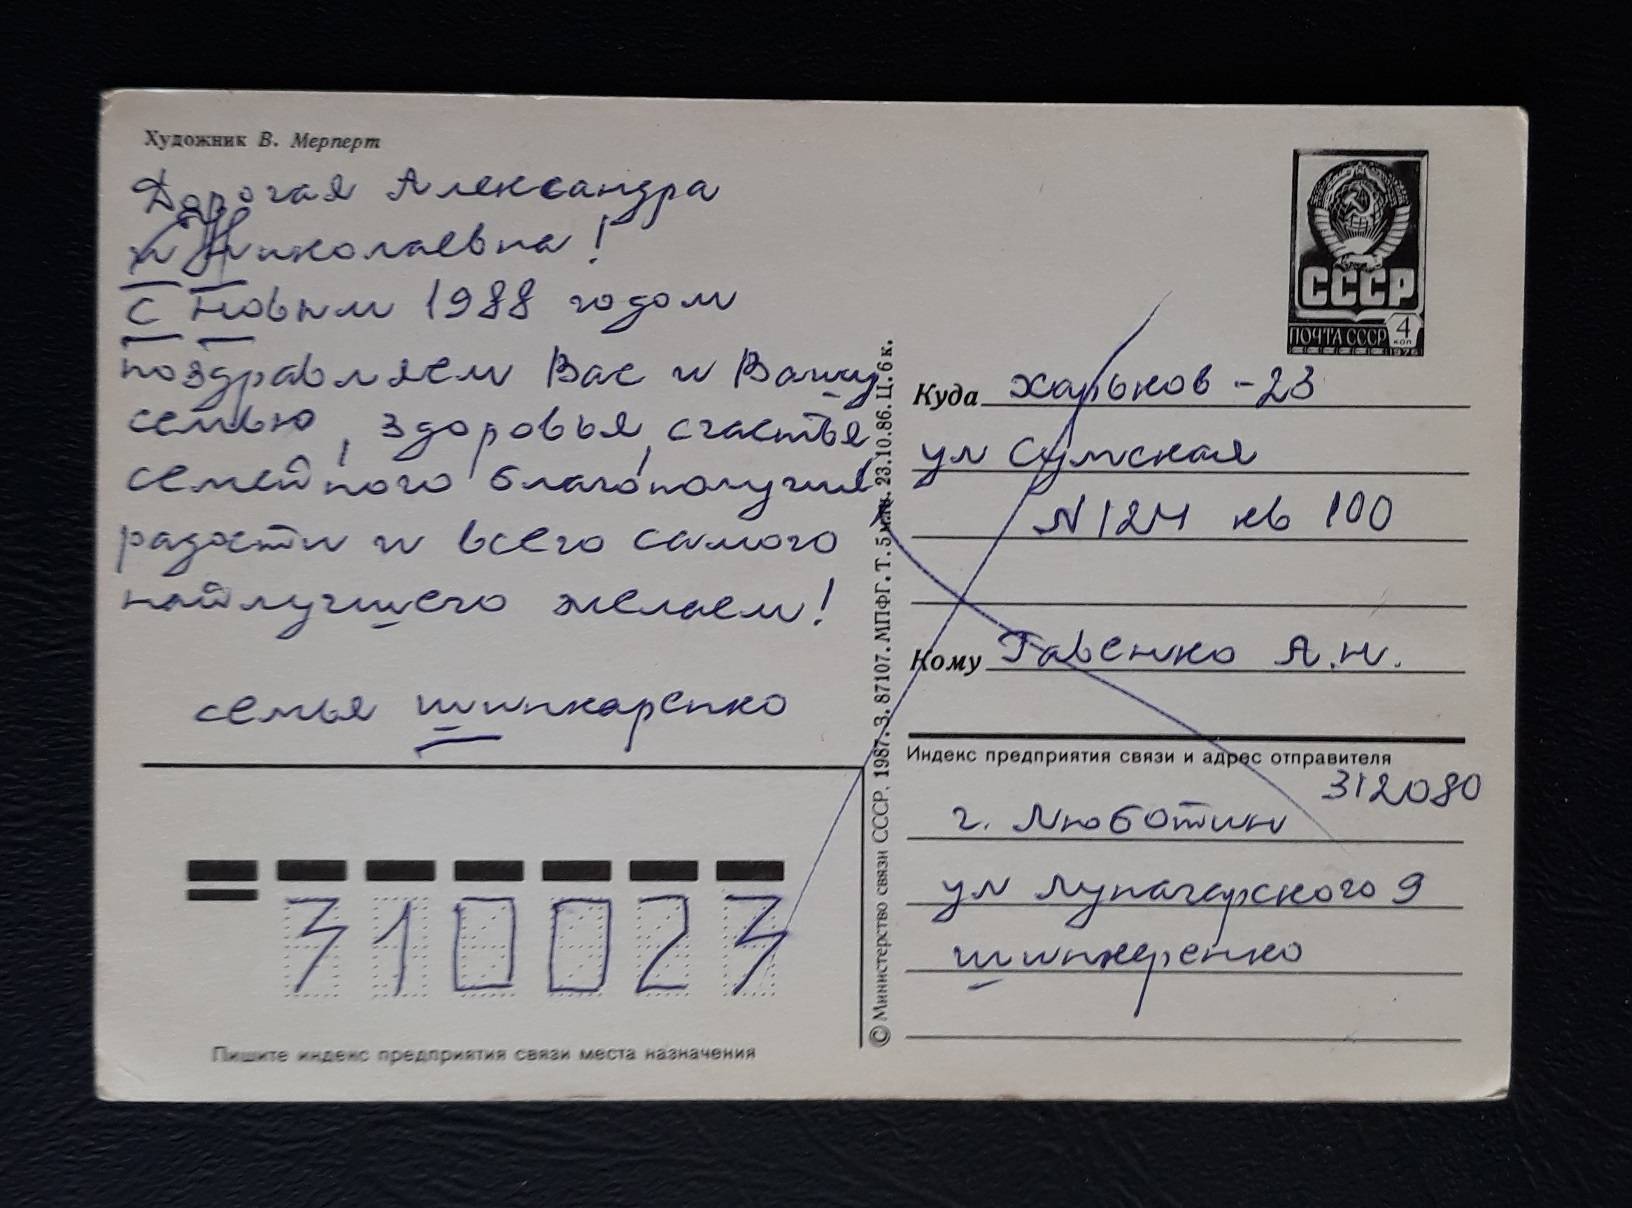 Художник В. Мерперт
Дорогая Александра
Николаевна!
С Новым 1988 годом
поздравляем Вас и Вашу
семью, здоровья, счастья
семейного благополучия
радости и всего самого
найлучшего желаем!
семья Шинкаренко
310023
Пишите индекс предприятия связи места назначения
© Министерство связи СССР. 1987. З. 87107. МПФГ. Т. 5 млн. 23.10.86. Ц. 6 к.
СССР
ПОЧТА СССР 4 коп
1976
Куда Харьков -23
ул Сумская
N 124 кв 100
Кому Гавенко А.Н.
Индекс предприятия связи и адрес отправителя
312080
г. Люботин
ул Луначарского 9
Шинкаренко